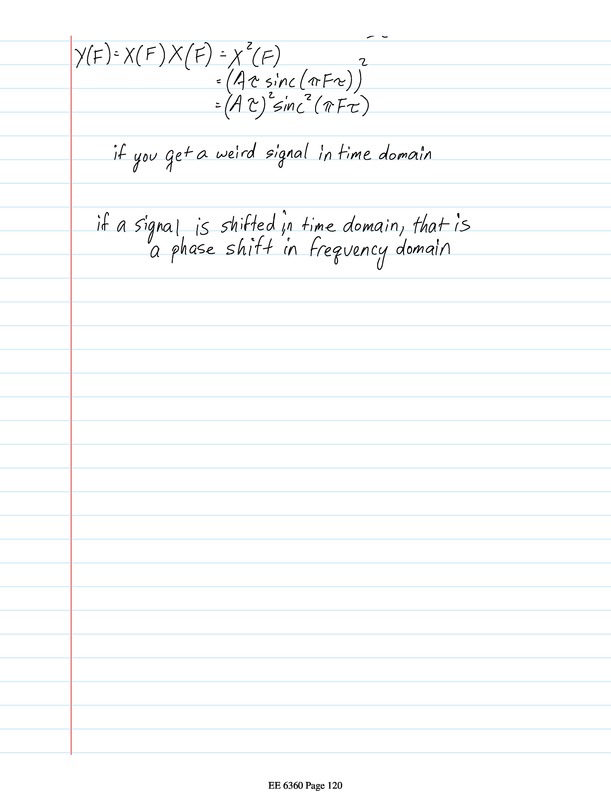 Y(F)=X(F)X(F)=X²(F)
=(Aτ sinc(πFτ))²
=(Aτ)²sinc²(πFτ)
if you get a weird signal in time domain
if a signal is shifted in time domain, that is
a phase shift in frequency domain
EE 6360 Page 120